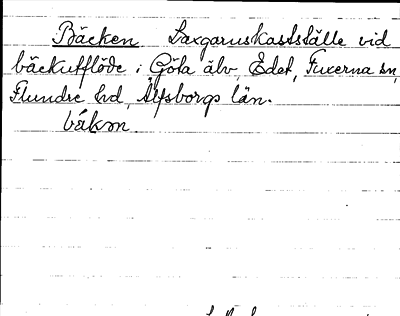 Bäcken Laxgarnskastställe vid
bäckutflöde i Göta älv, Edet, Fuxerna sn,
Flundre hd, Älfsborgs län.
båkɔn